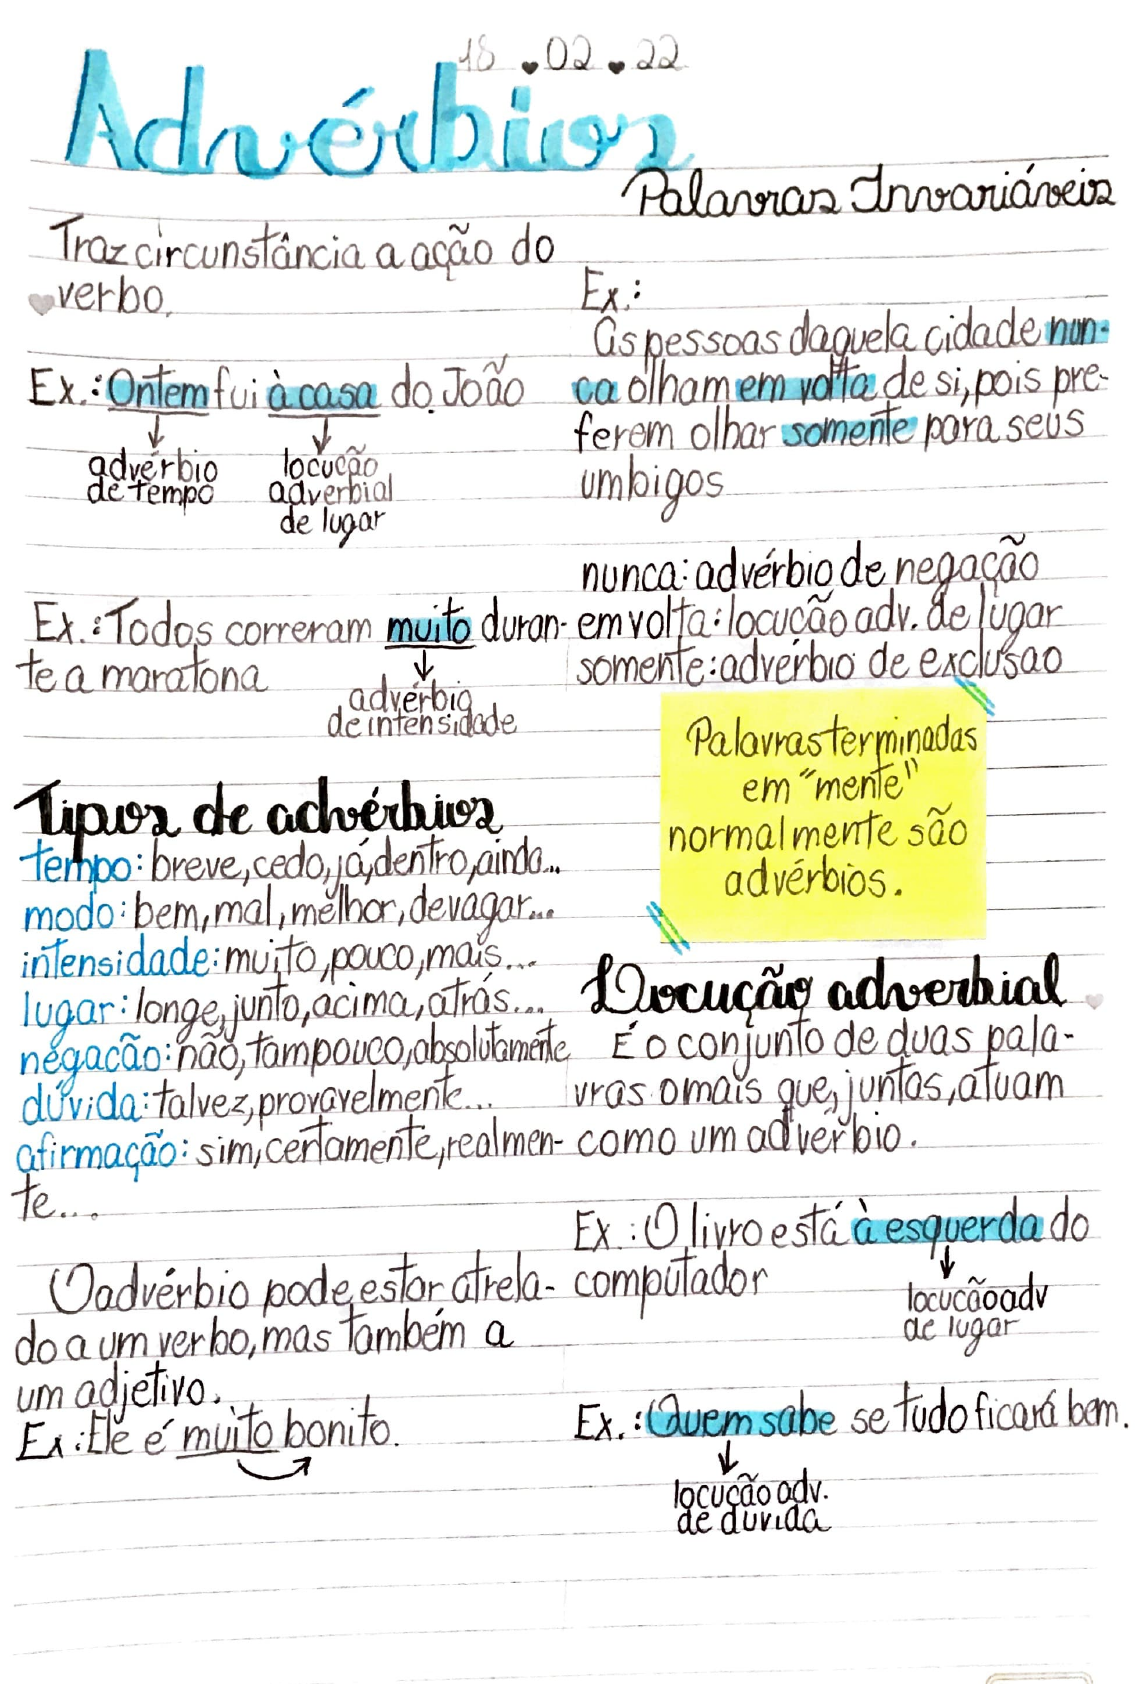 18.02.22
Advérbios
Palavras Invariáveis
Traz circunstância a ação do
verbo.
Ex.: Ontem fui à casa do João
advérbio
de tempo
locução
adverbial
de lugar
Ex.: Todos correram muito duran-
te a maratona
advérbio
de intensidade
Tipos de advérbios
tempo: breve, cedo, já, dentro, ainda...
modo: bem, mal, melhor, devagar...
intensidade: muito, pouco, mais...
lugar: longe, junto, acima, atrás...
negação: não, tampouco, absolutamente
dúvida: talvez, provavelmente...
afirmação: sim, certamente, realmen-
te...
O advérbio pode estar atrela-
do a um verbo, mas também a
um adjetivo.
Ex: Ele é muito bonito.
Ex.:
As pessoas daquela cidade nun-
ca olham em volta de si, pois pre-
ferem olhar somente para seus
umbigos
nunca: advérbio de negação
em volta: locução adv. de lugar
somente: advérbio de exclusao
Palavras terminadas
em "mente"
normalmente são
advérbios.
Locução adverbial
É o conjunto de duas pala-
vras o mais que, juntas, atuam
como um advérbio.
Ex.: O livro está à esquerda do
computador
locução adv
de lugar
Ex.: Quem sabe se tudo ficará bem.
locução adv.
de duvida